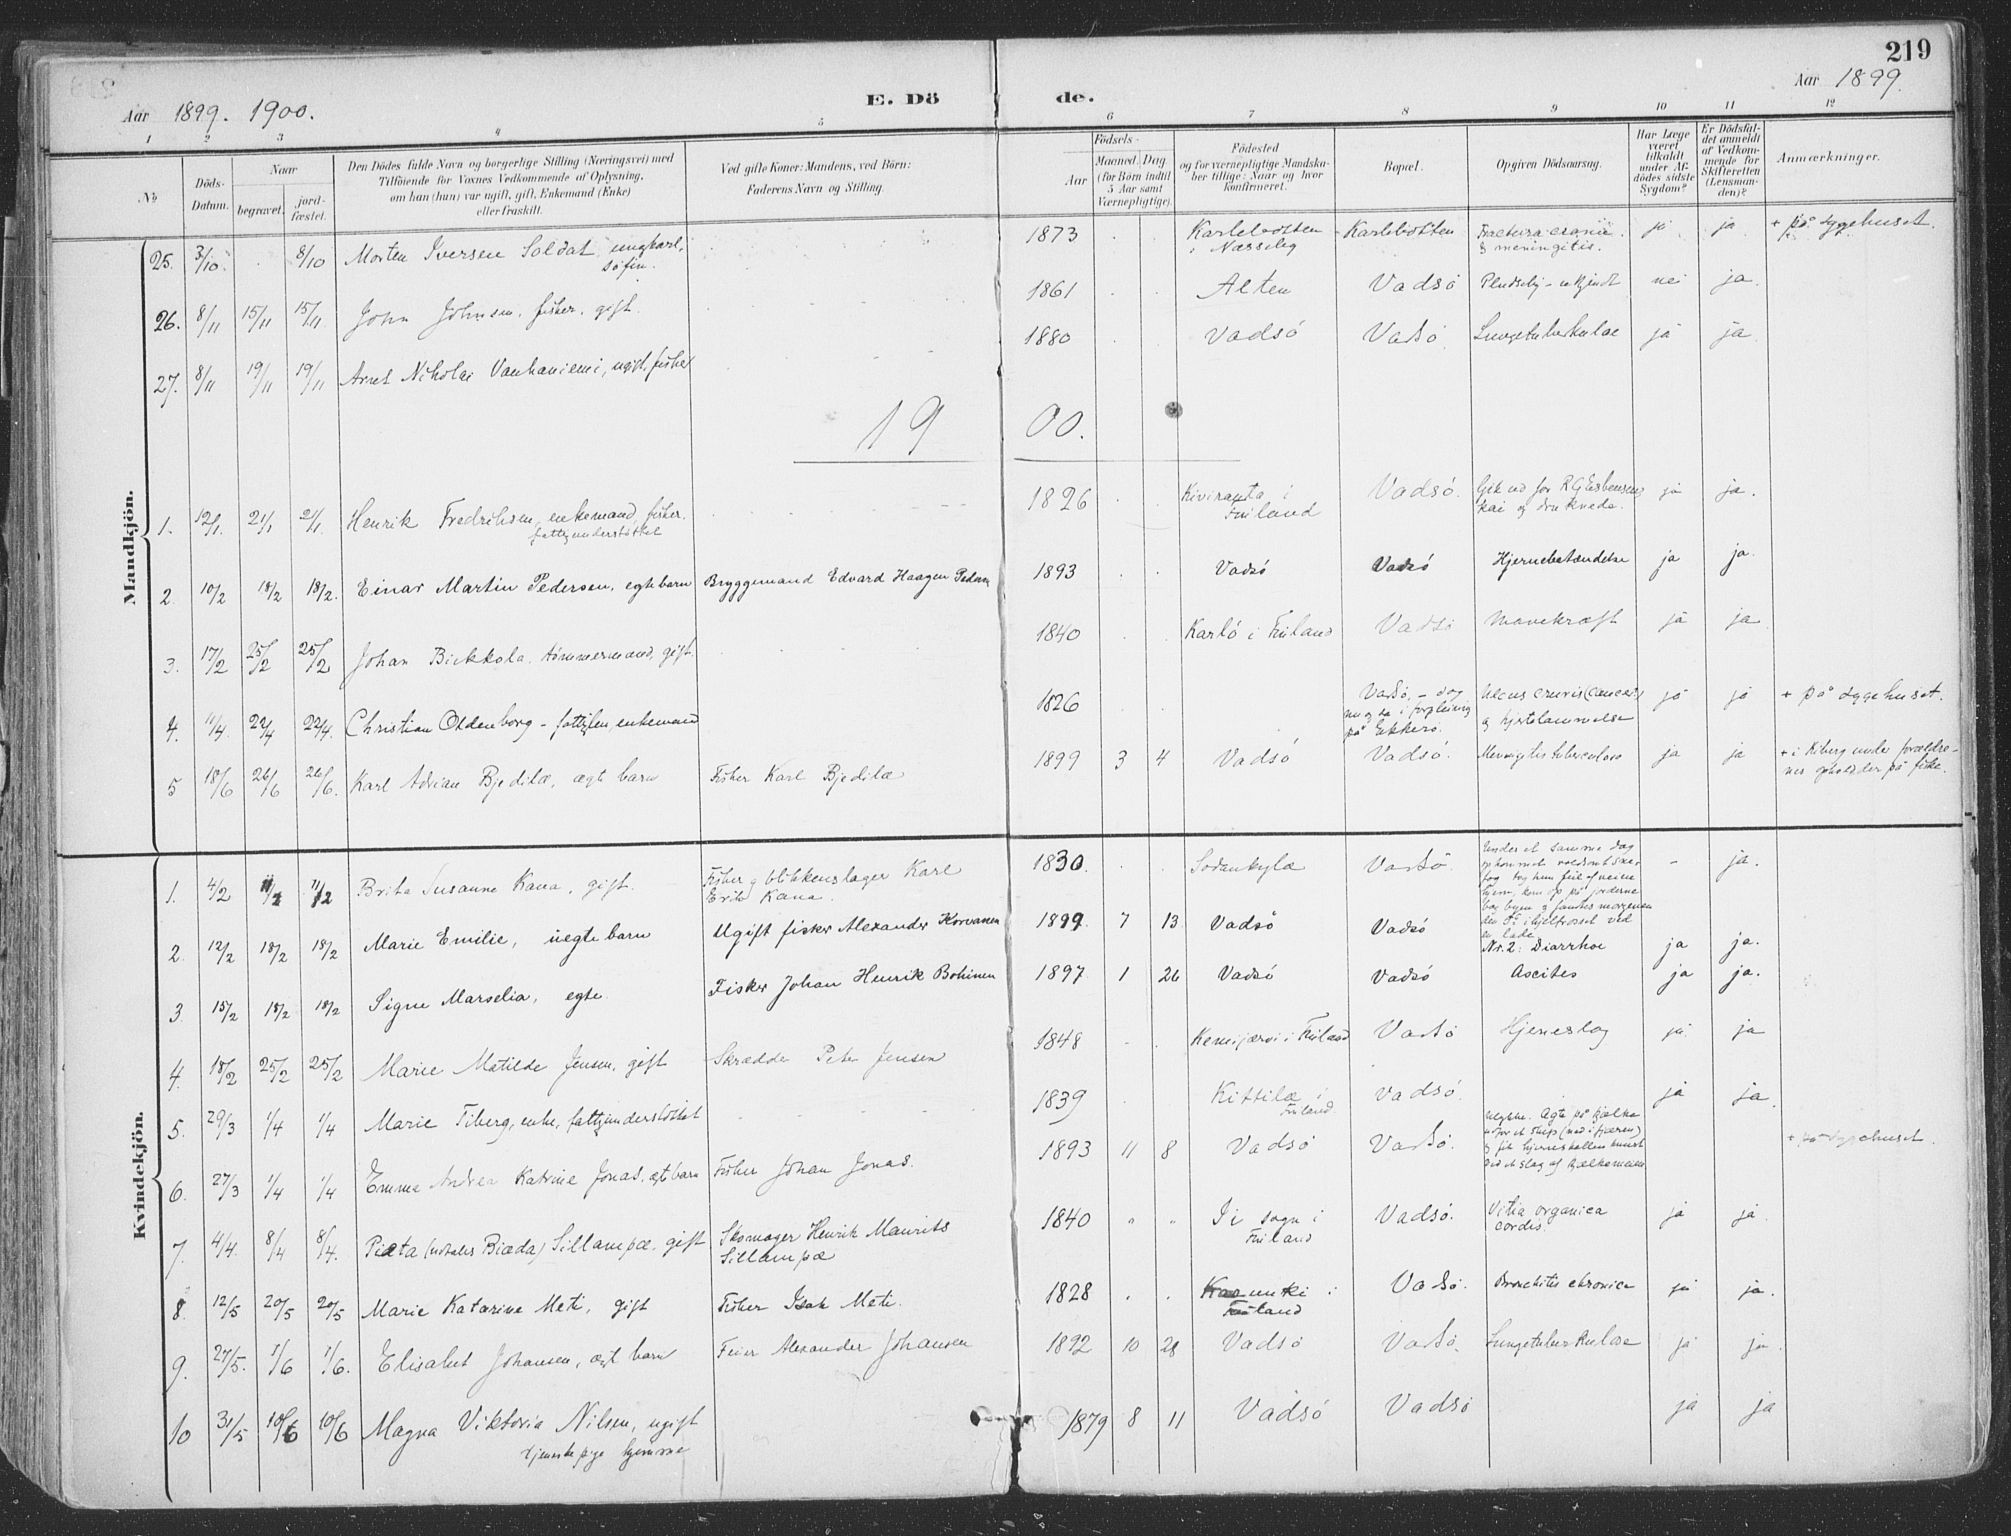 219
Aar 1899. 1900.
E. Dö
de.
Aar 1899.
1 2 3 4 5 6 7 8 9 10 11 12
No
Döds-
Datum.
Naar
begravet.
jord-
fæstet.
Den Dödes fulde Navn og borgerlige Stilling (Næringsvei) med
Tilföiende for Voxnes Vedkommende af Oplysning,
om han (hun) var ugift, gift, Enkemand (Enke)
eller fraskilt.
Ved gifte Koner: Mandens, ved Börn:
Faderens Navn og Stilling.
Födsels-
Aar
Maaned. Dag
(for Börn indtil
5 Aar samt
Værnepligtige).
Födested
og for værnepligtige Mandska-
ber tillige: Naar og hvor
konfirmeret.
Bopæl.
Opgiven Dödsaarsag.
Har Læge
været
tilkaldt
under Af-
dödes sidste
Sygdom?
Er Dödsfal-
det anmeldt
af Vedkom-
mende for
Skifteretten
(Lensman-
den)?
Anmærkninger.
Mandkjön.
25. 3/10 8/10 Morten Iversen Soldat, ungkarl, 1873 Karlebotten Karlebotten Fractura cranii ja ja + på sygehuset.
søfin. i Næsseby & meningitis.
26. 8/11 15/11 15/11 John Johnsen, fisker, gift. 1861 Alten Vadsö Pludselig - ukjendt nei ja.
27. 8/11 19/11 19/11 Arnt Nikolai Vanhaniemi, ugift, fisker 1880 Vadsö Vadsö Lungetuberkulose ja ja.
19 00.
1. 12/1. 21/1 21/1. Henrik Fredriksen, enkemand, fisker. 1826 Kiviranta i Vadsö. Gik ud for R G Esbensens ja ja.
fattigunderstöttet Finland kai og druknede.
2. 10/2 18/2 18/2. Einar Martin Pedersen, egte barn Bryggemand Edvard Haagen Pedersen 1893 Vadsö Vadsö Hjernebetændelse ja ja.
3. 17/2 25/2 25/2 Johan Bickkola, tömmermand, gift. 1840 Karlö i Finland Vadsö Mavekræft ja ja
4. 11/4. 22/4 22/4. Christian Oldenborg - fattiglem, enkemand 1826 Vadsö, - dog Ulcus cruris (cancer) ja ja + på sygehuset.
nu og da i forpleining og hjertelammelse
på Ekkerö.
5 18/6 26/6 26/6. Karl Adrian Bjedilæ, ægte barn Fisker Karl Bjedilæ 1899 3 4 Vadsö Vadsö. Meningitis tuberculosa ja ja + i Kiberg under forældre-
nes ophold der på fiske.
Kvindekjön.
1. 4/2 11/2 11/2 Brita Susanne Kana, gift. Fisker og blikkenslager Karl 1830. Sodankylæ Vadsö. - ja.
Erik Kana.
Under et samme dag
opkommet voldsomt sne-
fog tog hun feil af veien
hjem, kom op på jorderne
bag byen & fandtes morgenen
ihjelfrosset ved
en lade
2. 12/2 18/2 18/2 Marie Emilie, uegte barn Ugift fisker Alexander Korvanen 1899. 7 13 Vadsö Vadsö Nr. 2: Diarrhoe ja ja.
3. 15/2 18/2 18/2 Signe Marselia, egte. Fisker Johan Henrik Bohinen 1897 1 26 Vadsö Vadsö Ascites ja ja.
4. 18/2 25/2 25/2 Marie Matilde Jensen, gift Skrædder Peter Jensen 1848 Kemijærvi i Finland Vadsö Hjerneslag ja ja
5. 29/3 1/4 1/4 Marie Tiberg, enke, fattigunderstöttet 1839 Kittilæ i Vadsö. ja ja.
Finland.
6. 27/3 1/4 1/4 Emma Andrea Katrine Jonas, ægt barn Fisker Johan Jonas. 1893 11 8 Vadsö Vadsö. + på sygehuset.
Ulykke. Agte på kjælke
udfor et skip (ned i fjæren)
og fik hjerneskallen knust
ved et slag af kjælkemeien.
7. 4/4. 8/4 8/4. Piæta (notabes Biæda) Sillampæ, gift Skomager Henrik Maurits 1840 " " Ii sogn i Vadsö. Vitia organica ja ja.
Sillampæ Finland cordis.
8. 12/5 20/5 20/5 Marie Katarine Meti, gift Fisker Isak Meti. 1828 i Vadsö. Bronchitis chronica ja ja.
Finland
9. 27/5. 1/6 1/6. Elisabet Johansen, ægt barn Feier Alexander Johansen 1892 10 28 Vadsö Vadsö. Lungetuberkulose ja ja.
10 31/5 10/6 10/6 Magna Viktoria Nilsen, ugift 1879 8 11 Vadsö Vadsö ja ja
tjenestepige hjemme